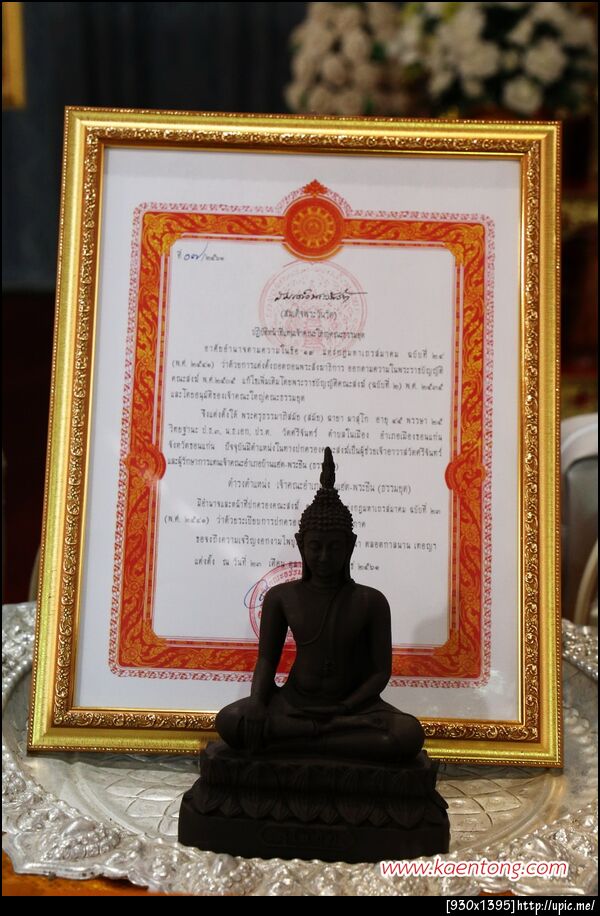 ที่ ๐๘๗/๒๕๖๑
(สมเด็จพระวันรัต)
ปฏิบัติหน้าที่แทนเจ้าคณะใหญ่คณะธรรมยุต
อาศัยอำนาจตามความในข้อ ๑๙ แห่งกฎมหาเถรสมาคม ฉบับที่ ๒๔
(พ.ศ. ๒๕๔๑) ว่าด้วยการแต่งตั้งถอดถอนพระสังฆาธิการ ออกตามความในพระราชบัญญัติ
คณะสงฆ์ พ.ศ.๒๕๐๕ แก้ไขเพิ่มเติมโดยพระราชบัญญัติคณะสงฆ์ (ฉบับที่ ๒) พ.ศ. ๒๕๓๕
และโดยอนุมัติของเจ้าคณะใหญ่คณะธรรมยุต
จึงแต่งตั้งให้ พระครูธรรมาภิสมัย (สมัย) ฉายา อายุ ๔๕ พรรษา ๒๕
วิทยฐานะ ป.ธ.๓, น.ธ.เอก, ป.ด. วัดศรีจันทร์ ตำบลในเมือง อำเภอเมืองขอนแก่น
จังหวัดขอนแก่น ปัจจุบันมีตำแหน่งในทางปกครองคณะสงฆ์เป็นผู้ช่วยเจ้าอาวาสวัดศรีจันทร์
และผู้รักษาการแทนเจ้าคณะอำเภอบ้านแฮด-พระยืน (ธรรมยุต)
ดำรงตำแหน่ง เจ้าคณะอำเภอบ้านแฮด-พระยืน (ธรรมยุต)
มีอำนาจและหน้าที่ปกครองคณะสงฆ์ กฎมหาเถรสมาคม ฉบับที่ ๒๓
(พ.ศ. ๒๕๔๑) ว่าด้วยระเบียบการปกครอง
ขอจงถึงความเจริญงอกงามไพบูลย์ ตลอดกาลนาน เทอญฯ
แต่งตั้ง ณ วันที่ ๒๓ เดือน ตุลาคม ๒๕๖๑
www.kaentong.com
[930x1395]http://upic.me/